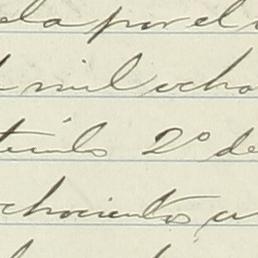 da por el
mil ocho
tículo 2º de
chocientos cu